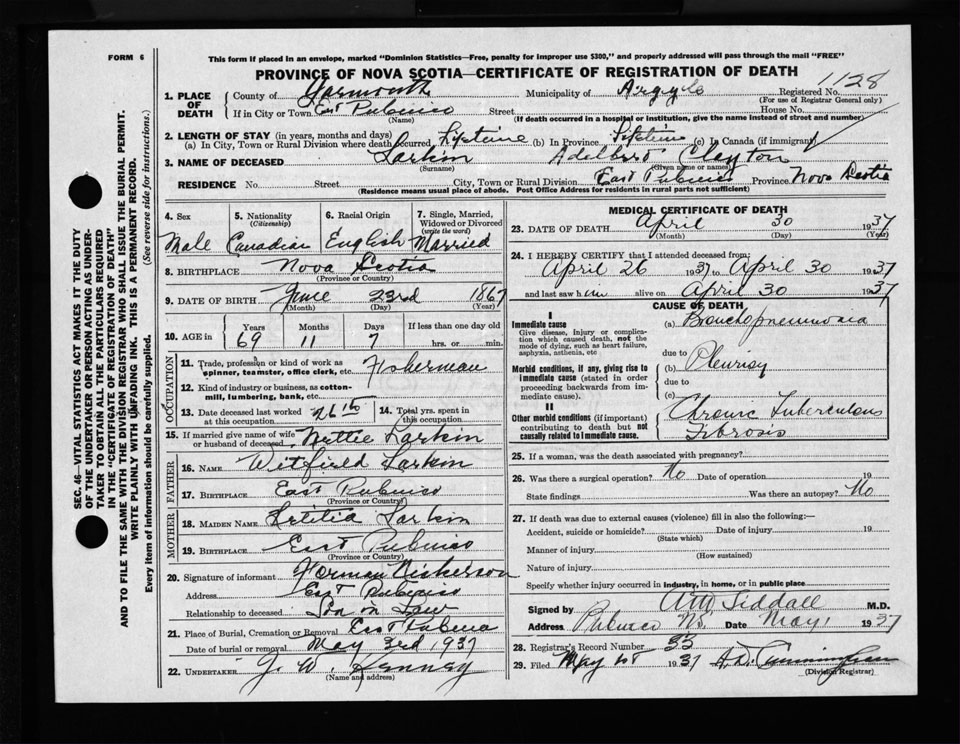 FORM 6
This form if placed in an envelope, marked "Dominion Statistics—Free, penalty for improper use $300," and properly addressed will pass through the mail "FREE"
PROVINCE OF NOVA SCOTIA—CERTIFICATE OF REGISTRATION OF DEATH
1128
1. PLACE OF DEATH County of Yarmouth Municipality of Argyle Registered No.
(For use of Registrar General only)
If in City or Town East Pubnico Street House No.
(Name) (If death occurred in a hospital or institution, give the name instead of street and number)
2. LENGTH OF STAY (in years, months and days)
(a) In City, Town or Rural Division where death occurred Lifetime (b) In Province Lifetime (c) In Canada (if immigrant)
3. NAME OF DECEASED Larkin Adelbert Clayton
(Surname) (Given name or names)
RESIDENCE No. Street City, Town or Rural Division East Pubnico Province Nova Scotia
(Residence means usual place of abode. Post Office Address for residents in rural parts not sufficient)
4. Sex Male
5. Nationality (Citizenship) Canadian
6. Racial Origin English
7. Single, Married, Widowed or Divorced (write the word) Married
8. BIRTHPLACE Nova Scotia
(Province or Country)
9. DATE OF BIRTH June 23rd 1867
(Month) (Day) (Year)
10. AGE in Years 69 Months 11 Days 7 If less than one day old hrs. or min.
OCCUPATION
11. Trade, profession or kind of work as spinner, teamster, office clerk, etc. Fisherman
12. Kind of industry or business, as cotton-mill, lumbering, bank, etc.
13. Date deceased last worked at this occupation
14. Total yrs. spent in this occupation
15. If married give name of wife or husband of deceased Nettie Larkin
FATHER
16. NAME Witfield Larkin
17. BIRTHPLACE East Pubnico
(Province or Country)
MOTHER
18. MAIDEN NAME Letitia Larkin
19. BIRTHPLACE East Pubnico
(Province or Country)
20. Signature of informant Forman Nickerson
Address East Pubnico
Relationship to deceased Son in Law
21. Place of Burial, Cremation or Removal East Pubnico
Date of burial or removal May 3rd 1937
22. UNDERTAKER J. W. Kenney
(Name and address)
MEDICAL CERTIFICATE OF DEATH
23. DATE OF DEATH April 30 1937
(Month) (Day) (Year)
24. I HEREBY CERTIFY that I attended deceased from:
April 26 1937 to April 30 1937
and last saw him alive on April 30 1937
CAUSE OF DEATH
I
Immediate cause (a) Bronchopneumonia
Give disease, injury or complication which caused death, not the mode of dying, such as heart failure, asphyxia, asthenia, etc
due to
Morbid conditions, if any, giving rise to immediate cause (stated in order proceeding backwards from immediate cause). (b) Pleurisy
due to
(c)
II
Other morbid conditions (if important) contributing to death but not causally related to immediate cause. Chronic Tuberculous Fibrosis
25. If a woman, was the death associated with pregnancy?
26. Was there a surgical operation? No Date of operation 19
State findings Was there an autopsy? No
27. If death was due to external causes (violence) fill in also the following:—
Accident, suicide or homicide? Date of injury 19
(State which)
Manner of injury
(How sustained)
Nature of injury
Specify whether injury occurred in industry, in home, or in public place
Signed by Siddall M.D.
Address Pubnico N.S. Date May 1 1937
28. Registrar's Record Number 33
29. Filed May 1st 1937 H.D. Cunningham
(Division Registrar)
SEC. 46—VITAL STATISTICS ACT MAKES IT THE DUTY
OF THE UNDERTAKER OR PERSON ACTING AS UNDERTAKER TO OBTAIN ALL THE PARTICULARS REQUIRED
IN THE "CERTIFICATE OF REGISTRATION OF DEATH"
AND TO FILE THE SAME WITH THE DIVISION REGISTRAR WHO SHALL ISSUE THE BURIAL PERMIT.
WRITE PLAINLY WITH UNFADING INK. THIS IS A PERMANENT RECORD.
Every item of information should be carefully supplied. (See reverse side for instructions.)